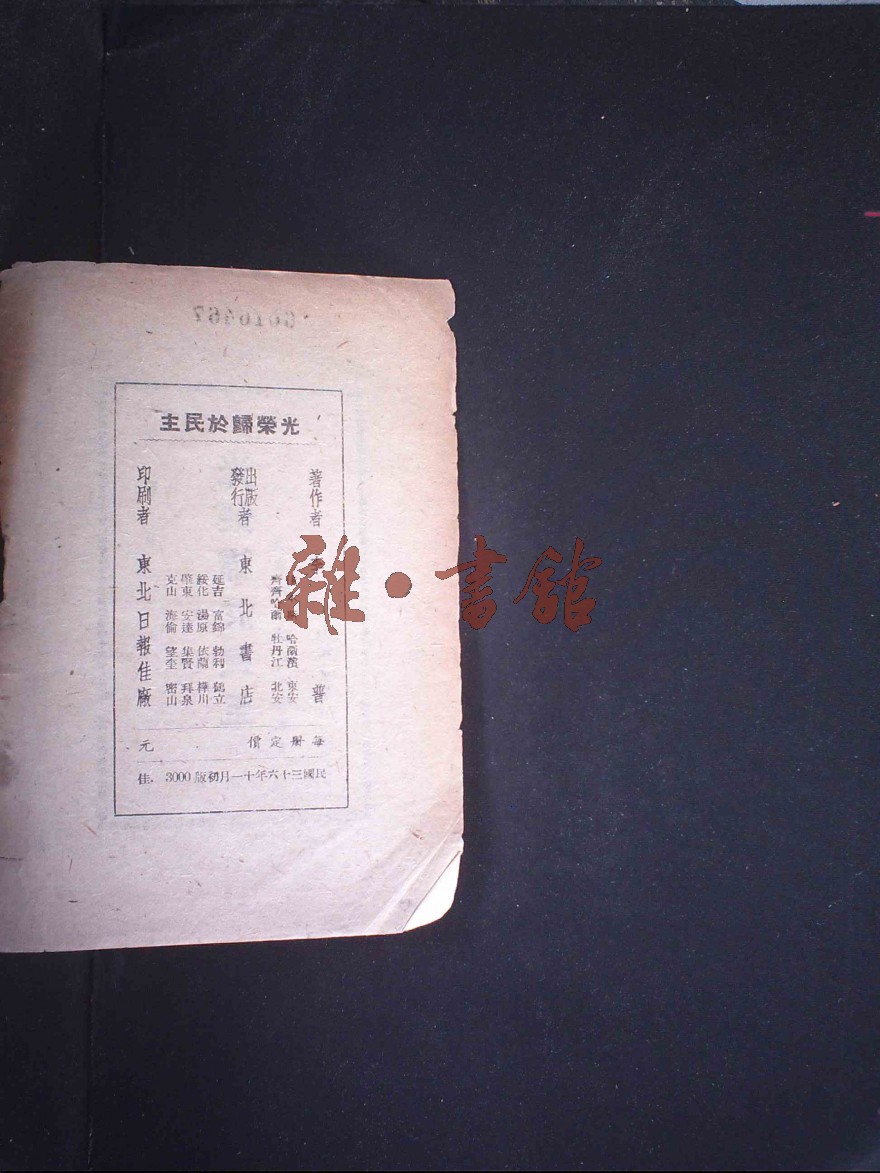 光榮歸於民主
著作者 普
出版發行者 東北書店
哈爾濱 東安
齊齊哈爾 牡丹江 北安
延吉 富錦 勃利 鶴立
綏化 湯原 依蘭 樺川
肇東 安達 集賢 拜泉
克山 海倫 望奎 密山
印刷者 東北日報佳廠
每冊定價 元
民國三十六年十一月初版 3000 佳.
雜·書館